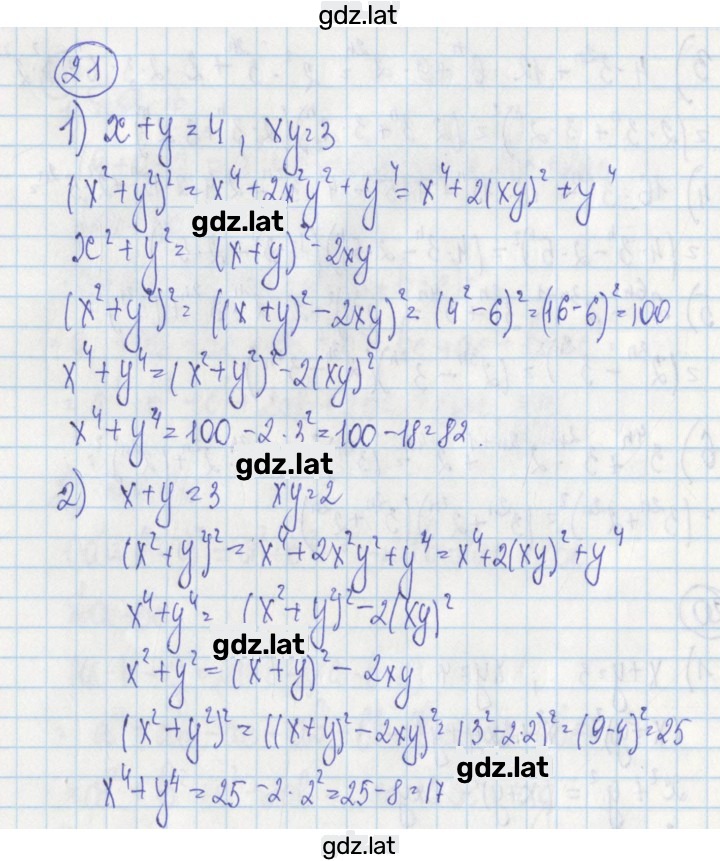 gdz.lat
21
1) x + y = 4, xy = 3
(x² + y²)² = x⁴ + 2x²y² + y⁴ = x⁴ + 2(xy)² + y⁴
gdz.lat
x² + y² = (x + y)² - 2xy
(x² + y²)² = ((x + y)² - 2xy)² = (4² - 6)² = (16 - 6)² = 100
x⁴ + y⁴ = (x² + y²)² - 2(xy)²
x⁴ + y⁴ = 100 - 2 · 3² = 100 - 18 = 82.
gdz.lat
2) x + y = 3 xy = 2
(x² + y²)² = x⁴ + 2x²y² + y⁴ = x⁴ + 2(xy)² + y⁴
x⁴ + y⁴ = (x² + y²)² - 2(xy)²
gdz.lat
x² + y² = (x + y)² - 2xy
(x² + y²)² = ((x + y)² - 2xy)² = (3² - 2·2)² = (9 - 4)² = 25
gdz.lat
x⁴ + y⁴ = 25 - 2 · 2² = 25 - 8 = 17
gdz.lat